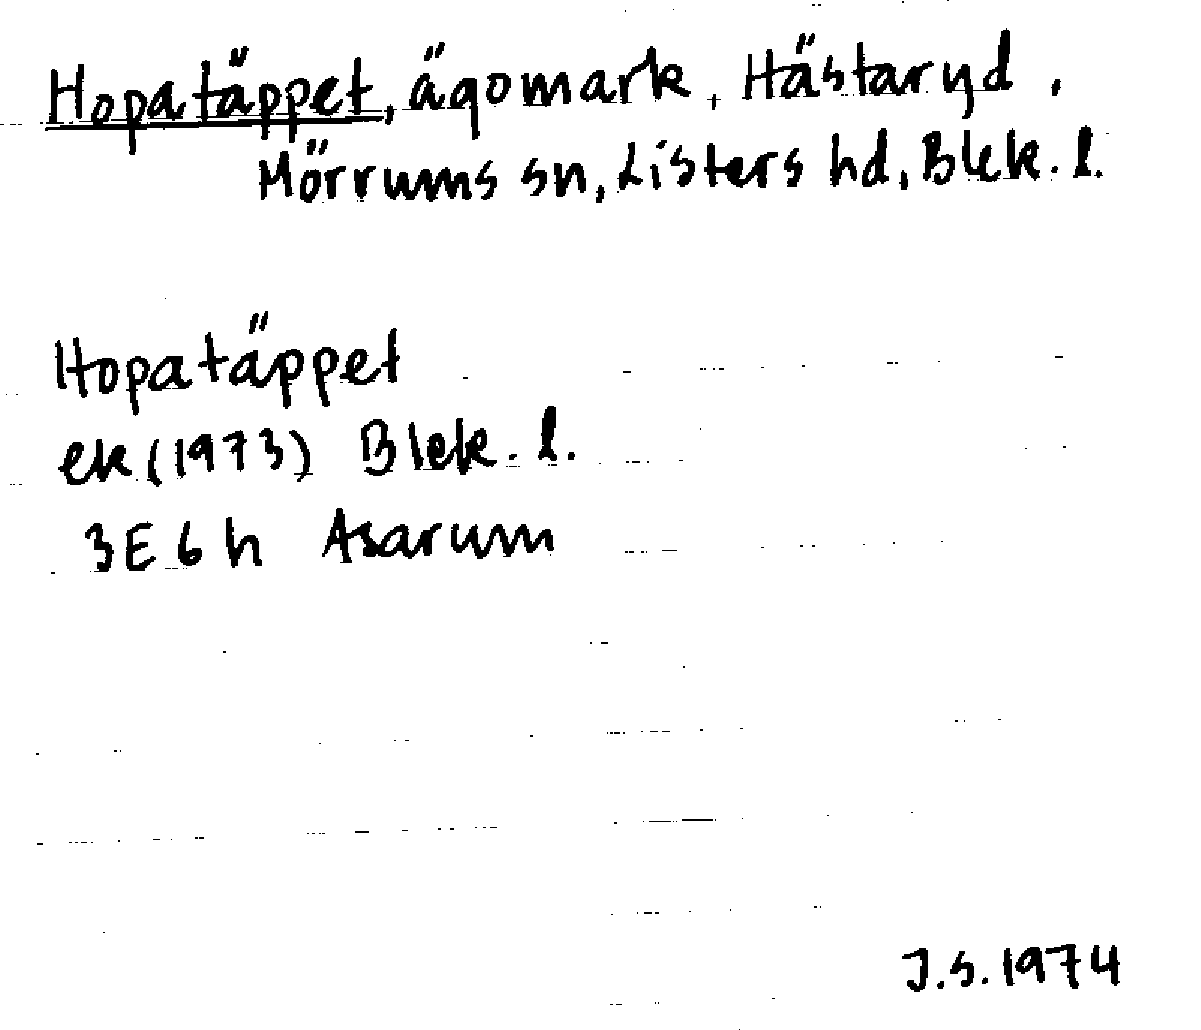 Hopatäppet, ägomark, Hästaryd,
Mörrums sn, Listers hd, Blek. l.
Hopatäppet
ek (1973) Blek. l.
3E6h Asarum
J.S. 1974